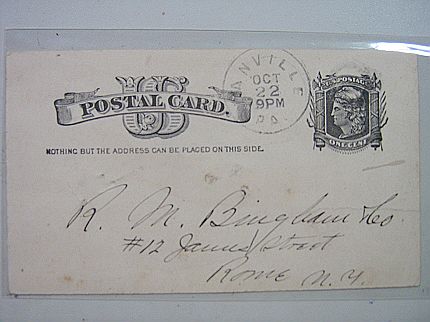 U S
POSTAL CARD.
ANVILLE
OCT
22
9PM
PA.
U.S. POSTAGE
ONE CENT
NOTHING BUT THE ADDRESS CAN BE PLACED ON THIS SIDE.
R. M. Bingham & Co.
#12 James Street
Rome N.Y.